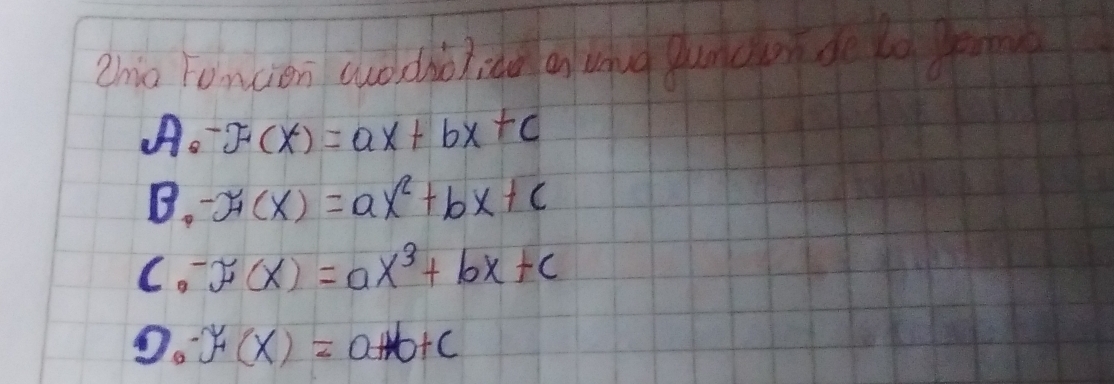 Una Función cuadrática es una función de la forma
A.- F(x) = ax + bx + c
B.- F(x) = ax² + bx + c
C.- F(x) = ax³ + bx + c
D.- F(x) = a+b+c